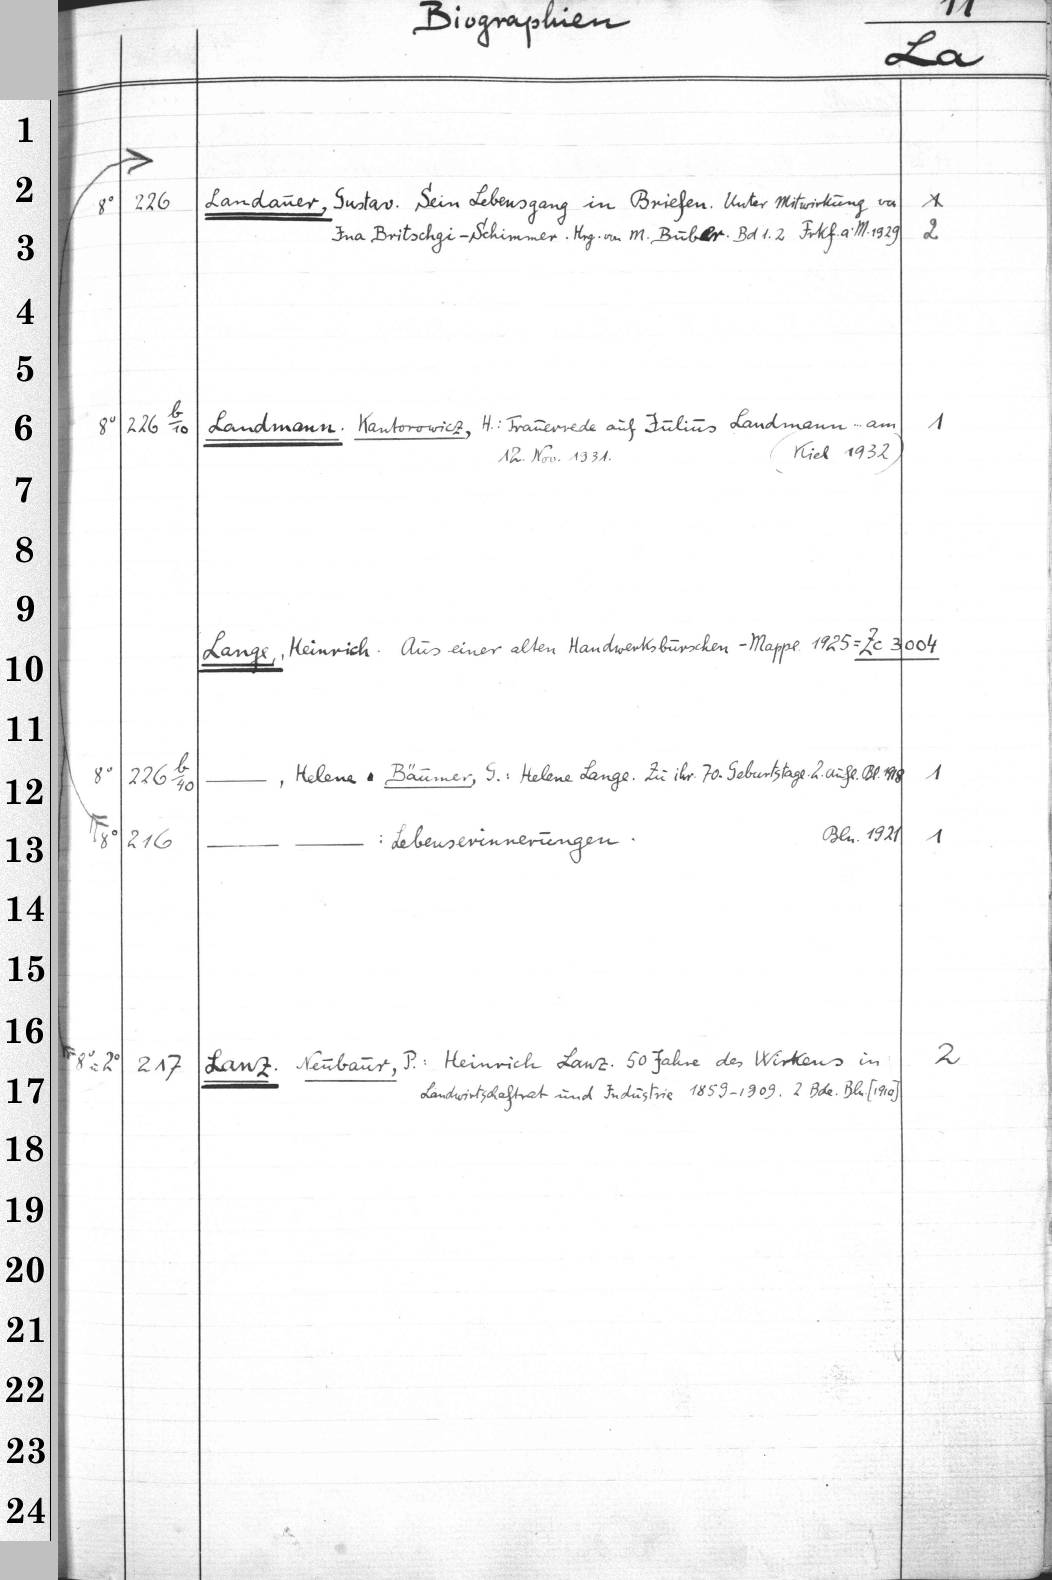 Biographien 11
La
1
2 8° 226 Landauer, Gustav. Sein Lebensgang in Briefen. Unter Mitwirkung von
3 Ina Britschgi-Schimmer. Hrg. von M. Buber. Bd 1.2 Frkf. a. M. 1929 2
4
5
6 8° 226 b/10 Landmann. Kantorowicz, H.: Trauerrede auf Julius Landmann .. am 1
12. Nov. 1931. (Kiel 1932)
7
8
9
10 Lange, Heinrich. Aus einer alten Handwerksburschen-Mappe 1925 = Zc 3004
11
12 8° 226 b/40 ——, Helene. Bäumer, G.: Helene Lange. Zu ihr. 70. Geburtstage. 2. Aufl. Bl. 1918 1
13 8° 216 —— ——: Lebenserinnerungen. Bln. 1921 1
14
15
16 8° 2° 217 Lanz. Neubaur, P.: Heinrich Lanz. 50 Jahre des Wirkens in 2
17 Landwirtschaft und Industrie 1859-1909. 2 Bde. Bln. [1910]
18
19
20
21
22
23
24